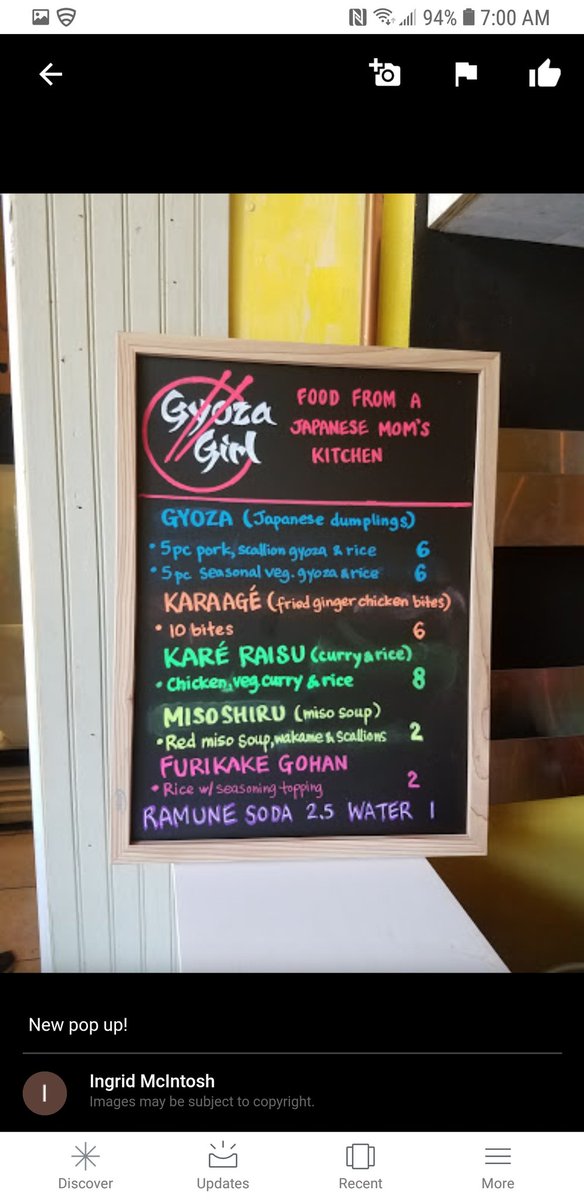 94% 7:00 AM
Gyoza
Girl
FOOD FROM A
JAPANESE MOM'S
KITCHEN
GYOZA (Japanese dumplings)
• 5pc pork, scallion gyoza & rice 6
• 5pc Seasonal veg. gyoza & rice 6
KARAAGÉ (fried ginger chicken bites)
• 10 bites 6
KARÉ RAISU (curry & rice)
• Chicken, veg. curry & rice 8
MISOSHIRU (miso soup)
• Red miso soup, wakame & scallions 2
FURIKAKE GOHAN
• Rice w/ seasoning topping 2
RAMUNE SODA 2.5 WATER 1
New pop up!
I
Ingrid McIntosh
Images may be subject to copyright.
Discover Updates Recent More